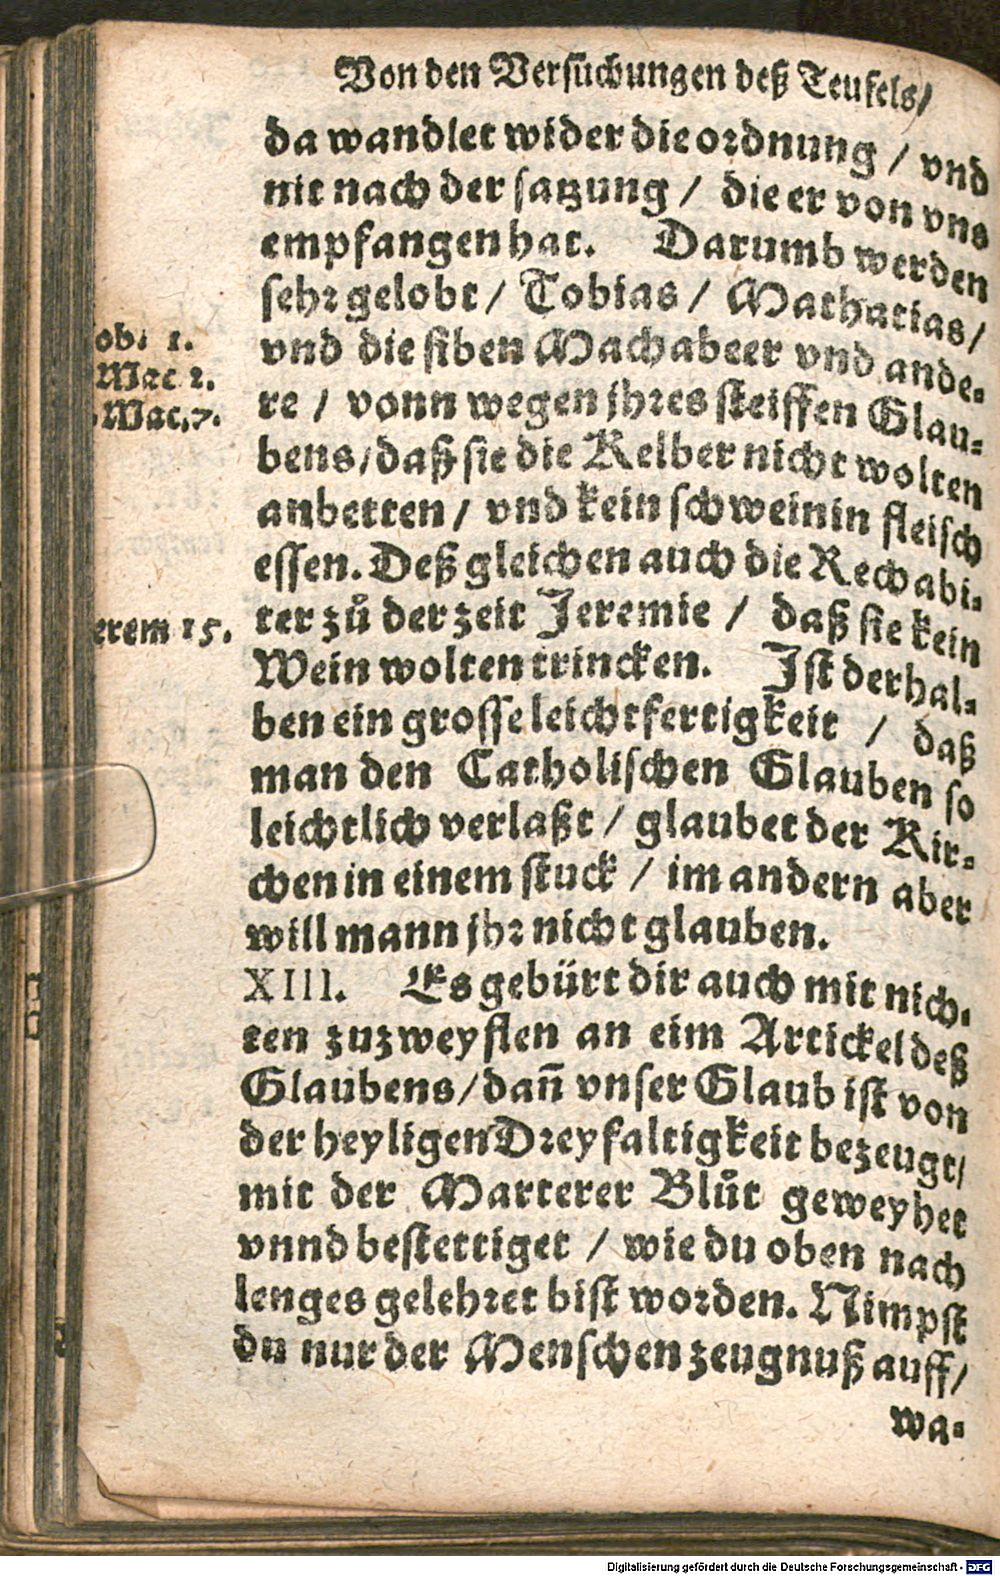 Von den Versuͤchungen deß Teufels/
da wandlet wider die ordnung / vnd
nit nach der satzung / die er von vns
empfangen hat. Darumb werden
sehr gelobt / Tobias / Mathatias /
vnd die siben Machabeer vnd ande-
re / vonn wegen jhres steiffen Glau-
bens / daß sie die Kelber nicht wolten
anbetten / vnd kein schweinin fleisch
essen. Deß gleichen auch die Rechabi-
ter zů der zeit Jeremie / daß sie kein
Wein wolten trincken. Ist derhal-
ben ein grosse leichtfertigkeit / daß
man den Catholischen Glauben so
leichtlich verlaßt / glaubet der Kir-
chen in einem stuck / im andern aber
will mann jhr nicht glauben.
XIII. Es gebürt dir auch mit nich-
ten zuzweyflen an eim Artickel deß
Glaubens / dañ vnser Glaub ist von
der heyligen Dreyfaltigkeit bezeugt /
mit der Marterer Blůt geweyhet
vnnd bestettiget / wie du oben nach
lenges gelehret bist worden. Nimpst
du nur der Menschen zeugnuß auff /
wa-
ob. 1.
Mac 2.
Mac. 7.
erem 15.
Digitalisierung gefördert durch die Deutsche Forschungsgemeinschaft - DFG